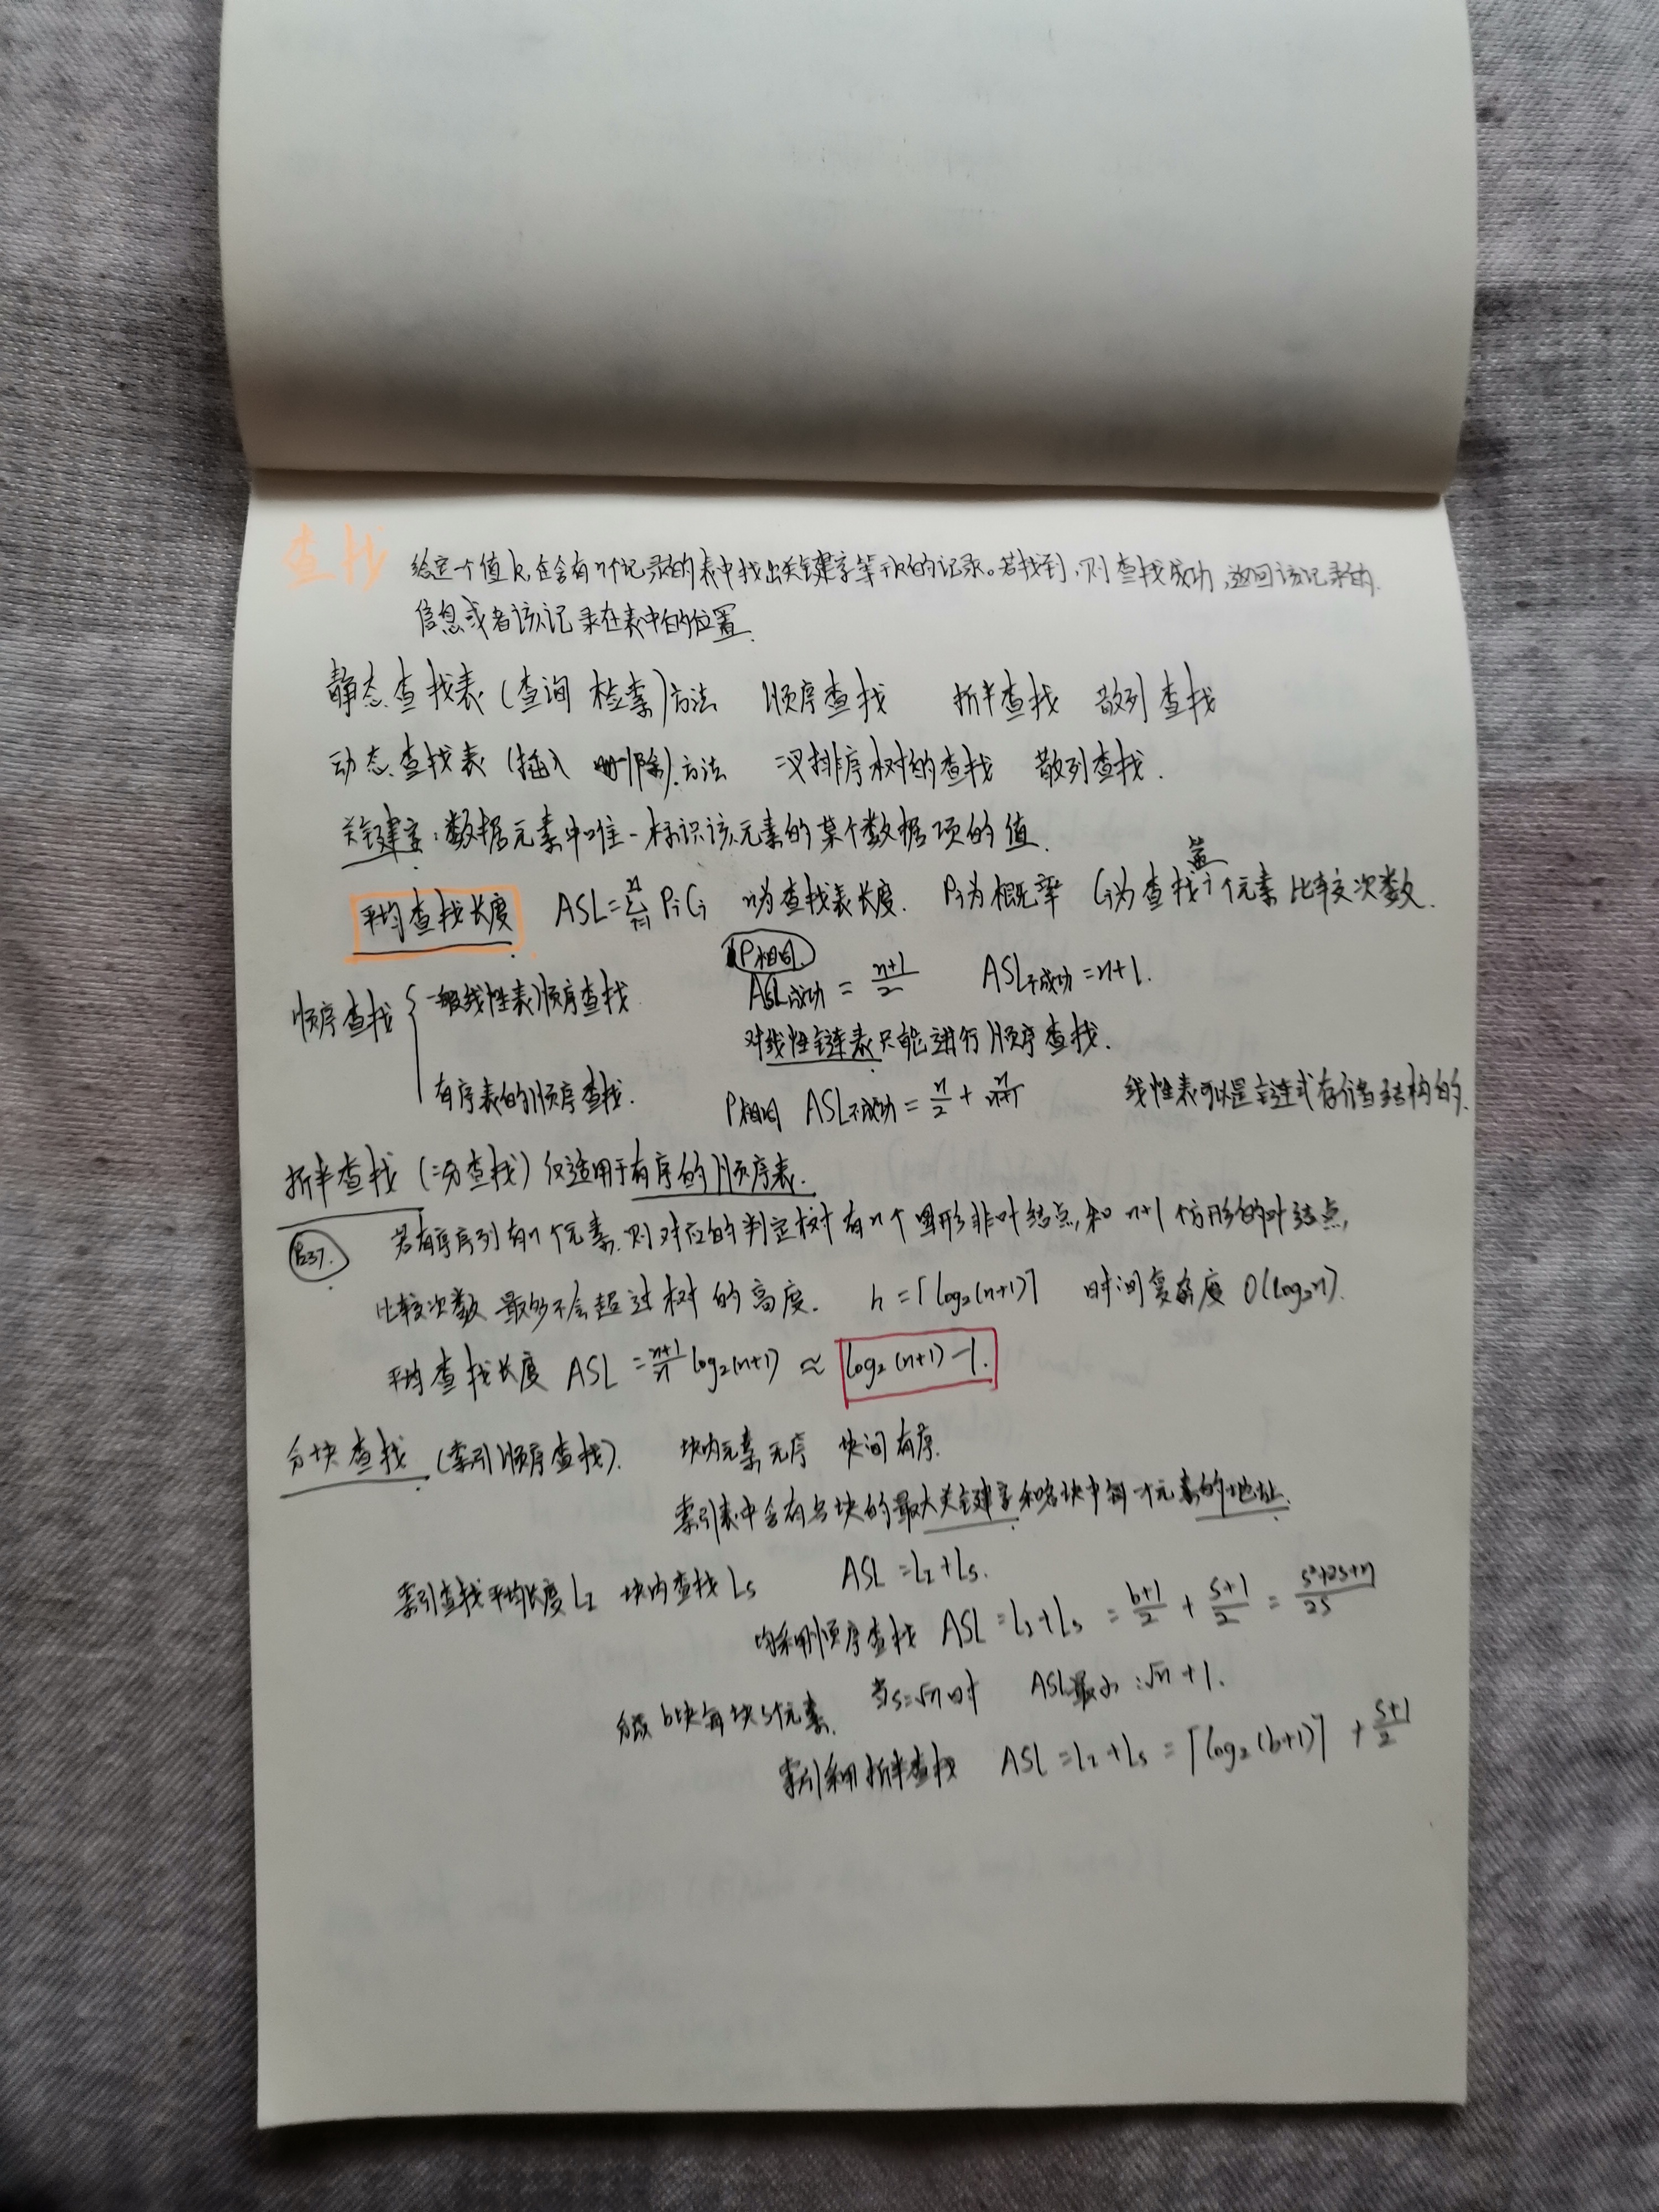 查找
给定一个值k,在含有n个记录的表中找出关键字等于k的记录。若找到,则查找成功,返回该记录的
信息或者该记录在表中的位置.
静态查找表(查询 检索)方法 顺序查找 折半查找 散列查找
动态查找表(插入 删除).方法 二叉排序树的查找 散列查找.
关键字:数据元素中唯一标识该元素的某个数据项的值.
平均查找长度 ASL=∑_{i=1}^{n} PiCi n为查找表长度. Pi为概率 Ci为查找第i个元素比较次数.
P相同.
顺序查找 { 一般线性表顺序查找 ASL成功 = (n+1)/2 ASL不成功=n+1.
对线性链表只能进行顺序查找.
有序表的顺序查找. P相同 ASL不成功 = n/2 + n/(n+1) 线性表可以是链式存储结构的.
折半查找(二分查找)仅适用于有序的顺序表.
若有序序列有n个元素.则对应的判定树有n个圆形非叶结点,和n+1个方形的叶结点,
比较次数最多不会超过树的高度. h=⌈log₂(n+1)⌉ 时间复杂度 O(log₂n).
平均查找长度 ASL = (n+1)/n log₂(n+1) ≈ log₂(n+1)-1.
分块查找.(索引顺序查找). 块内元素无序 块间有序.
索引表中含有各块的最大关键字和各块中第一个元素的地址.
索引查找平均长度LI 块内查找Ls ASL=LI+Ls.
均采用顺序查找 ASL=LI+Ls = (b+1)/2 + (s+1)/2 = (s²+2s+n)/2s
分成b块每块s个元素. 当s=√n时 ASL最小:√n+1.
索引采用折半查找 ASL=LI+Ls=⌈log₂(b+1)⌉ + (s+1)/2